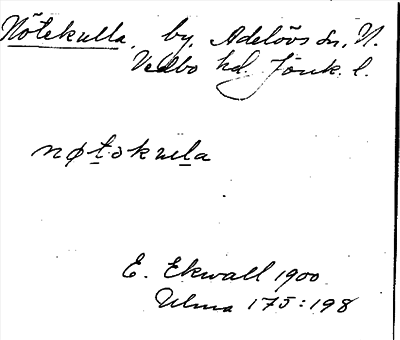 Nötekulla, by, Adelövs sn, N.
Vedbo hd. Jönk. l.
nøtəkulla
E. Ekwall 1900
Ulma 175:198